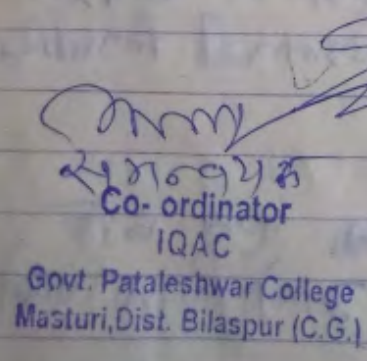 समन्वयक
Co- ordinator
IQAC
Govt. Pataleshwar College
Masturi,Dist. Bilaspur (C.G.)